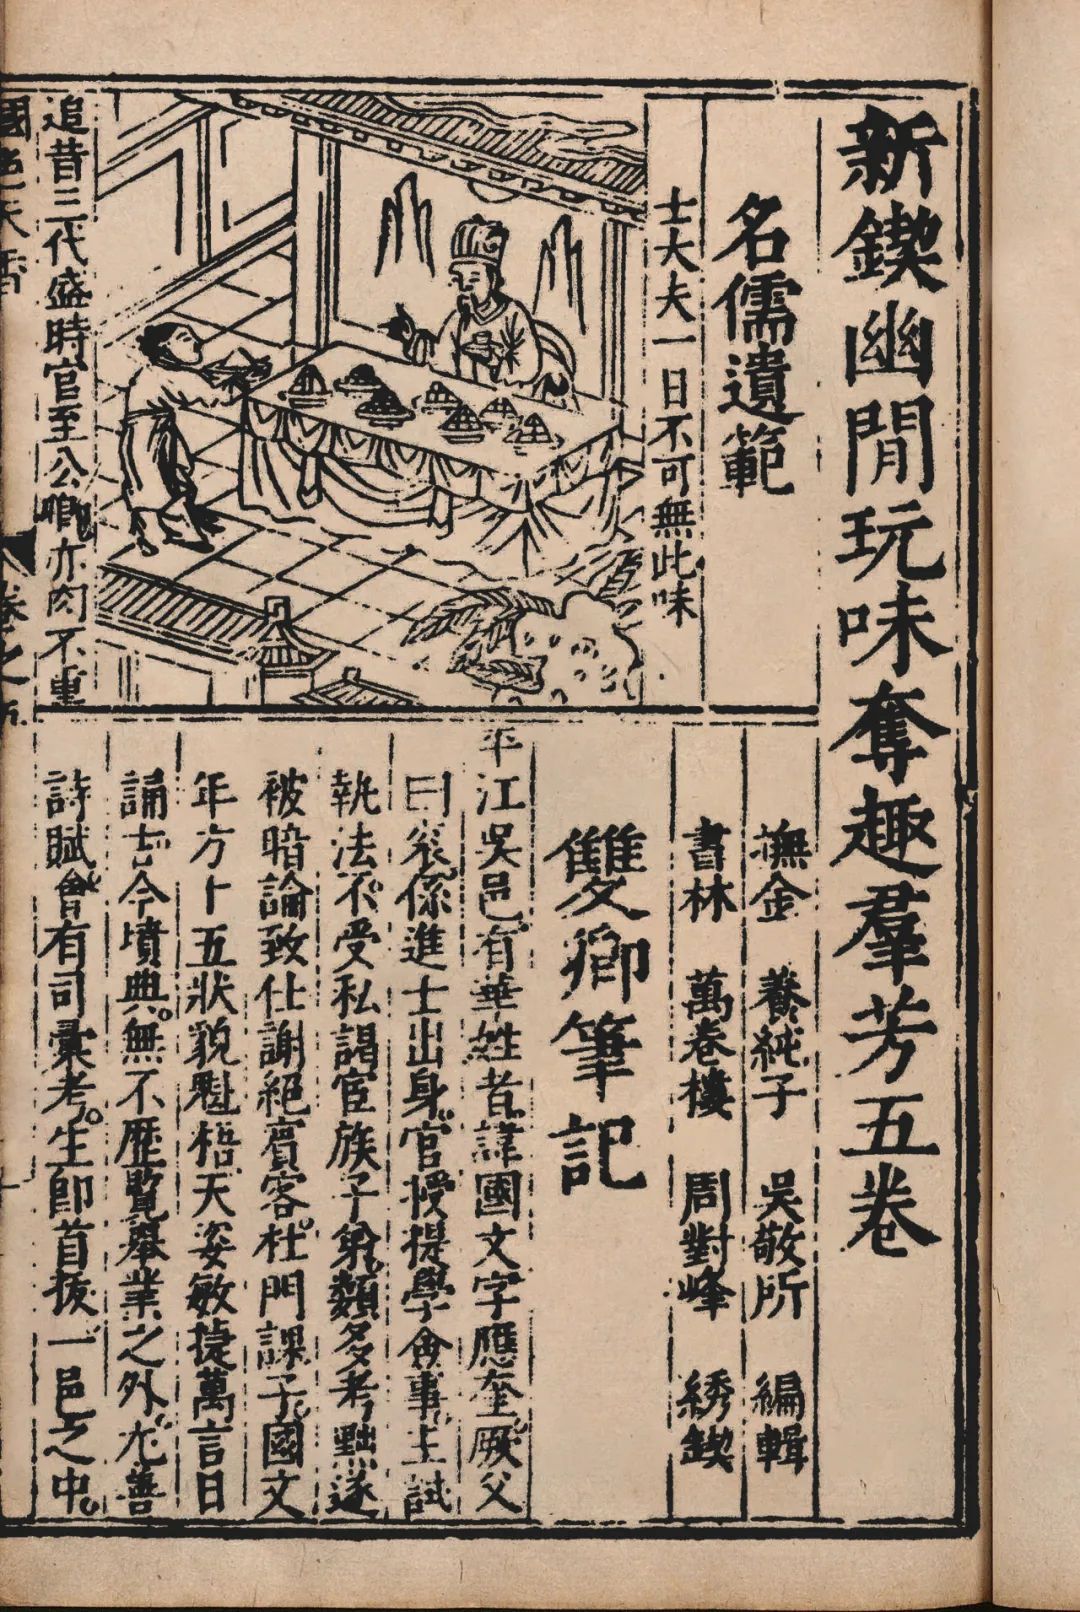 新鍥幽閒玩味奪趣羣芳五卷
名儒遺範
士大夫一日不可無此味
追昔三代盛時官至公卿亦肉不重
撫金 養純子 吳敬所 編輯
書林 萬卷樓 周對峰 綉鍥
雙卿筆記
平江吳邑。有華姓者。諱國文字應奎。厥父
曰袞。係進士出身。官授提學僉事。主試
執法。不受私謁。宦族子弟。類多考黜。遂
被暗論致仕。謝絕賓客。杜門課子。國文
年方十五。狀貌魁梧。天姿敏捷。萬言日
誦。古今墳典。無不歷覽。舉業之外。尤善
詩賦。會有司彙考。生即首拔。一邑之中。
國色天香
卷之五